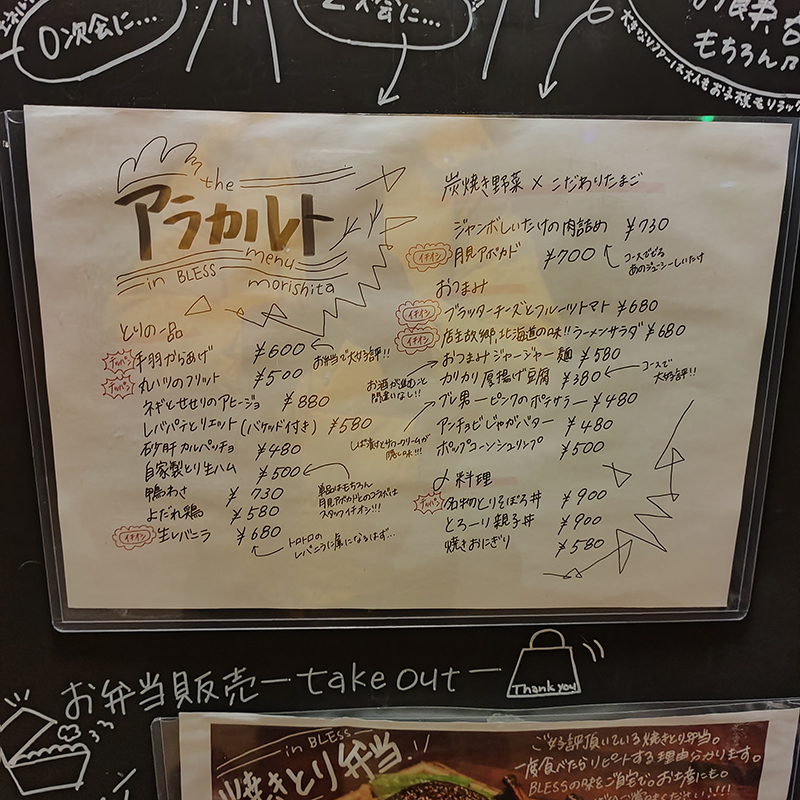 0次会に...
2次会に...
もちろん♪
the
アラカルト
menu
in BLESS morishita
とりの一品
テッパン 手羽からあげ ¥600
お弁当で大好評!!
テッパン 丸ハツのフリット ¥500
ネギとせせりのアヒージョ ¥880
レバパテとリエット(バケッド付き) ¥580
砂肝カルパッチョ ¥480
自家製とり生ハム ¥500
単品はもちろん
月見アボカドとのコラボは
スタッフイチオシ!!!
鴨わさ ¥730
よだれ鶏 ¥580
イチオシ 生レバニラ ¥680
トロトロの
レバニラに虜になるはず...
炭焼き野菜×こだわりたまご
ジャンボしいたけの肉詰め ¥730
イチオシ 月見アボカド ¥700
コースででる
あのジューシーしいたけ
おつまみ
イチオシ ブラッターチーズとフルーツトマト ¥680
イチオシ 店主故郷、北海道の味!!ラーメンサラダ ¥680
おつまみジャージャー麺 ¥580
お酒が進むこと
間違いなし!!
カリカリ厚揚げ豆腐 ¥380
コースで
大好評!!
ブレ男ーピングのポテサラー ¥480
しば漬けとサワークリームが
隠し味!!!
アンチョビじゃがバター ¥480
ポップコーンシュリンプ ¥500
〆料理
テッパン 名物とりそぼろ丼 ¥900
とろーり親子丼 ¥900
焼きおにぎり ¥580
お弁当販売ーtake outー
Thank you
in BLESS
焼きとり弁当!!
ご好評頂いている焼きとり弁当。
一度食べたらリピートする理由分かります。
BLESSの味をご自宅で。お土産にも。